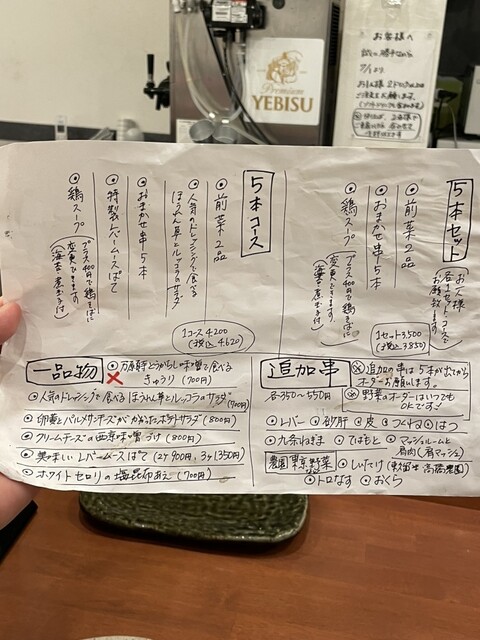 Premium
YEBISU
お客様へ
5本セット
お1人様
各1セット、コースで
お願いします
前菜2品
おまかせ串5本
鶏スープ
プラス400円で鶏そばに
変更できます
(海苔・煮玉子付)
1セット3,500
(税込 3,850)
5本コース
前菜2品
人気のドレッシングで食べる
ほうれん草とルッコラのサラダ
おまかせ串5本
特製レバームースぱて
鶏スープ
プラス400円で鶏そばに
変更できます
(海苔・煮玉子付)
1コース4200
(税込 4620)
一品物
万願寺とうがらし味噌で食べる
きゅうり (700円)
人気のドレッシングで食べる ほうれん草とルッコラのサラダ (900円)
卵黄とパルメザンチーズがかかったポテトサラダ (800円)
クリームチーズの西京味噌づけ (800円)
美味しいレバームースぱて (2ヶ900円、3ヶ1350円)
ホワイトセロリの塩昆布あえ (700円)
追加串
各350〜550円
追加の串は5本が出てから
オーダーお願いします。
野菜のオーダーはいつでも
OKです!
レバー 砂肝 皮 つくね はつ
九条ねぎま てばもと マッシュルームと
肩肉(肩マッシュ)
農園 野菜
しいたけ
トロなす おくら